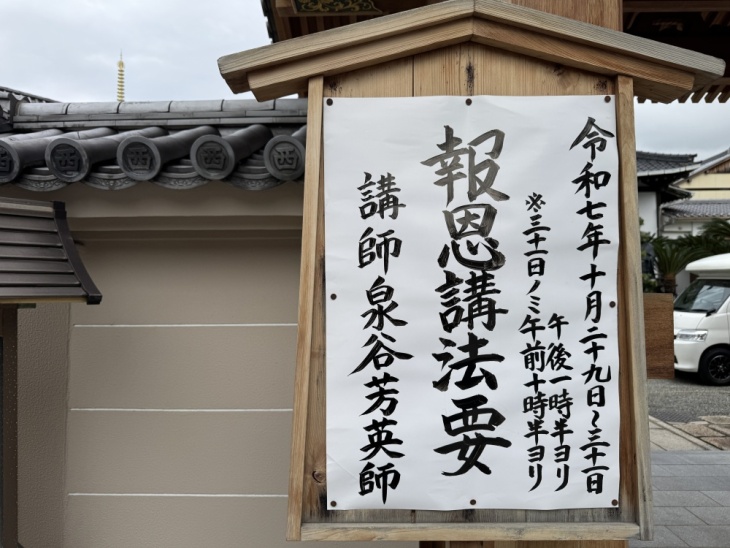 令和七年十月二十九日〜三十一日
午後一時半ヨリ
※三十一日ノミ午前十時半ヨリ
報恩講法要
講師泉谷芳英師
西
西
西
西
西